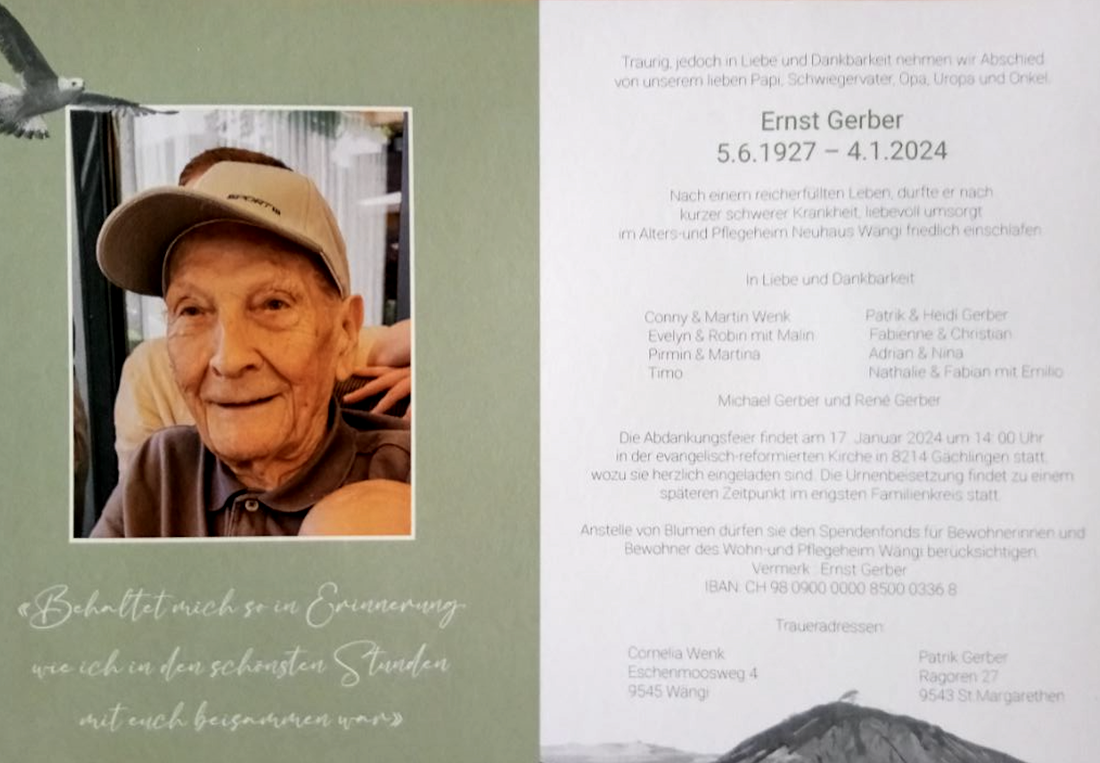 SPORTS
«Behaltet mich so in Erinnerung
wie ich in den schönsten Stunden
mit euch beisammen war»
Traurig, jedoch in Liebe und Dankbarkeit nehmen wir Abschied
von unserem lieben Papi, Schwiegervater, Opa, Uropa und Onkel.
Ernst Gerber
5.6.1927 – 4.1.2024
Nach einem reicherfüllten Leben, durfte er nach
kurzer schwerer Krankheit, liebevoll umsorgt
im Alters-und Pflegeheim Neuhaus Wängi friedlich einschlafen.
In Liebe und Dankbarkeit
Conny & Martin Wenk
Evelyn & Robin mit Malin
Pirmin & Martina
Timo
Patrik & Heidi Gerber
Fabienne & Christian
Adrian & Nina
Nathalie & Fabian mit Emilio
Michael Gerber und René Gerber
Die Abdankungsfeier findet am 17. Januar 2024 um 14: 00 Uhr
in der evangelisch-reformierten Kirche in 8214 Gächlingen statt,
wozu sie herzlich eingeladen sind. Die Urnenbeisetzung findet zu einem
späteren Zeitpunkt im engsten Familienkreis statt.
Anstelle von Blumen dürfen sie den Spendenfonds für Bewohnerinnen und
Bewohner des Wohn-und Pflegeheim Wängi berücksichtigen.
Vermerk : Ernst Gerber
IBAN: CH 98 0900 0000 8500 0336 8
Traueradressen:
Cornelia Wenk
Eschenmoosweg 4
9545 Wängi
Patrik Gerber
Ragoren 27
9543 St.Margarethen